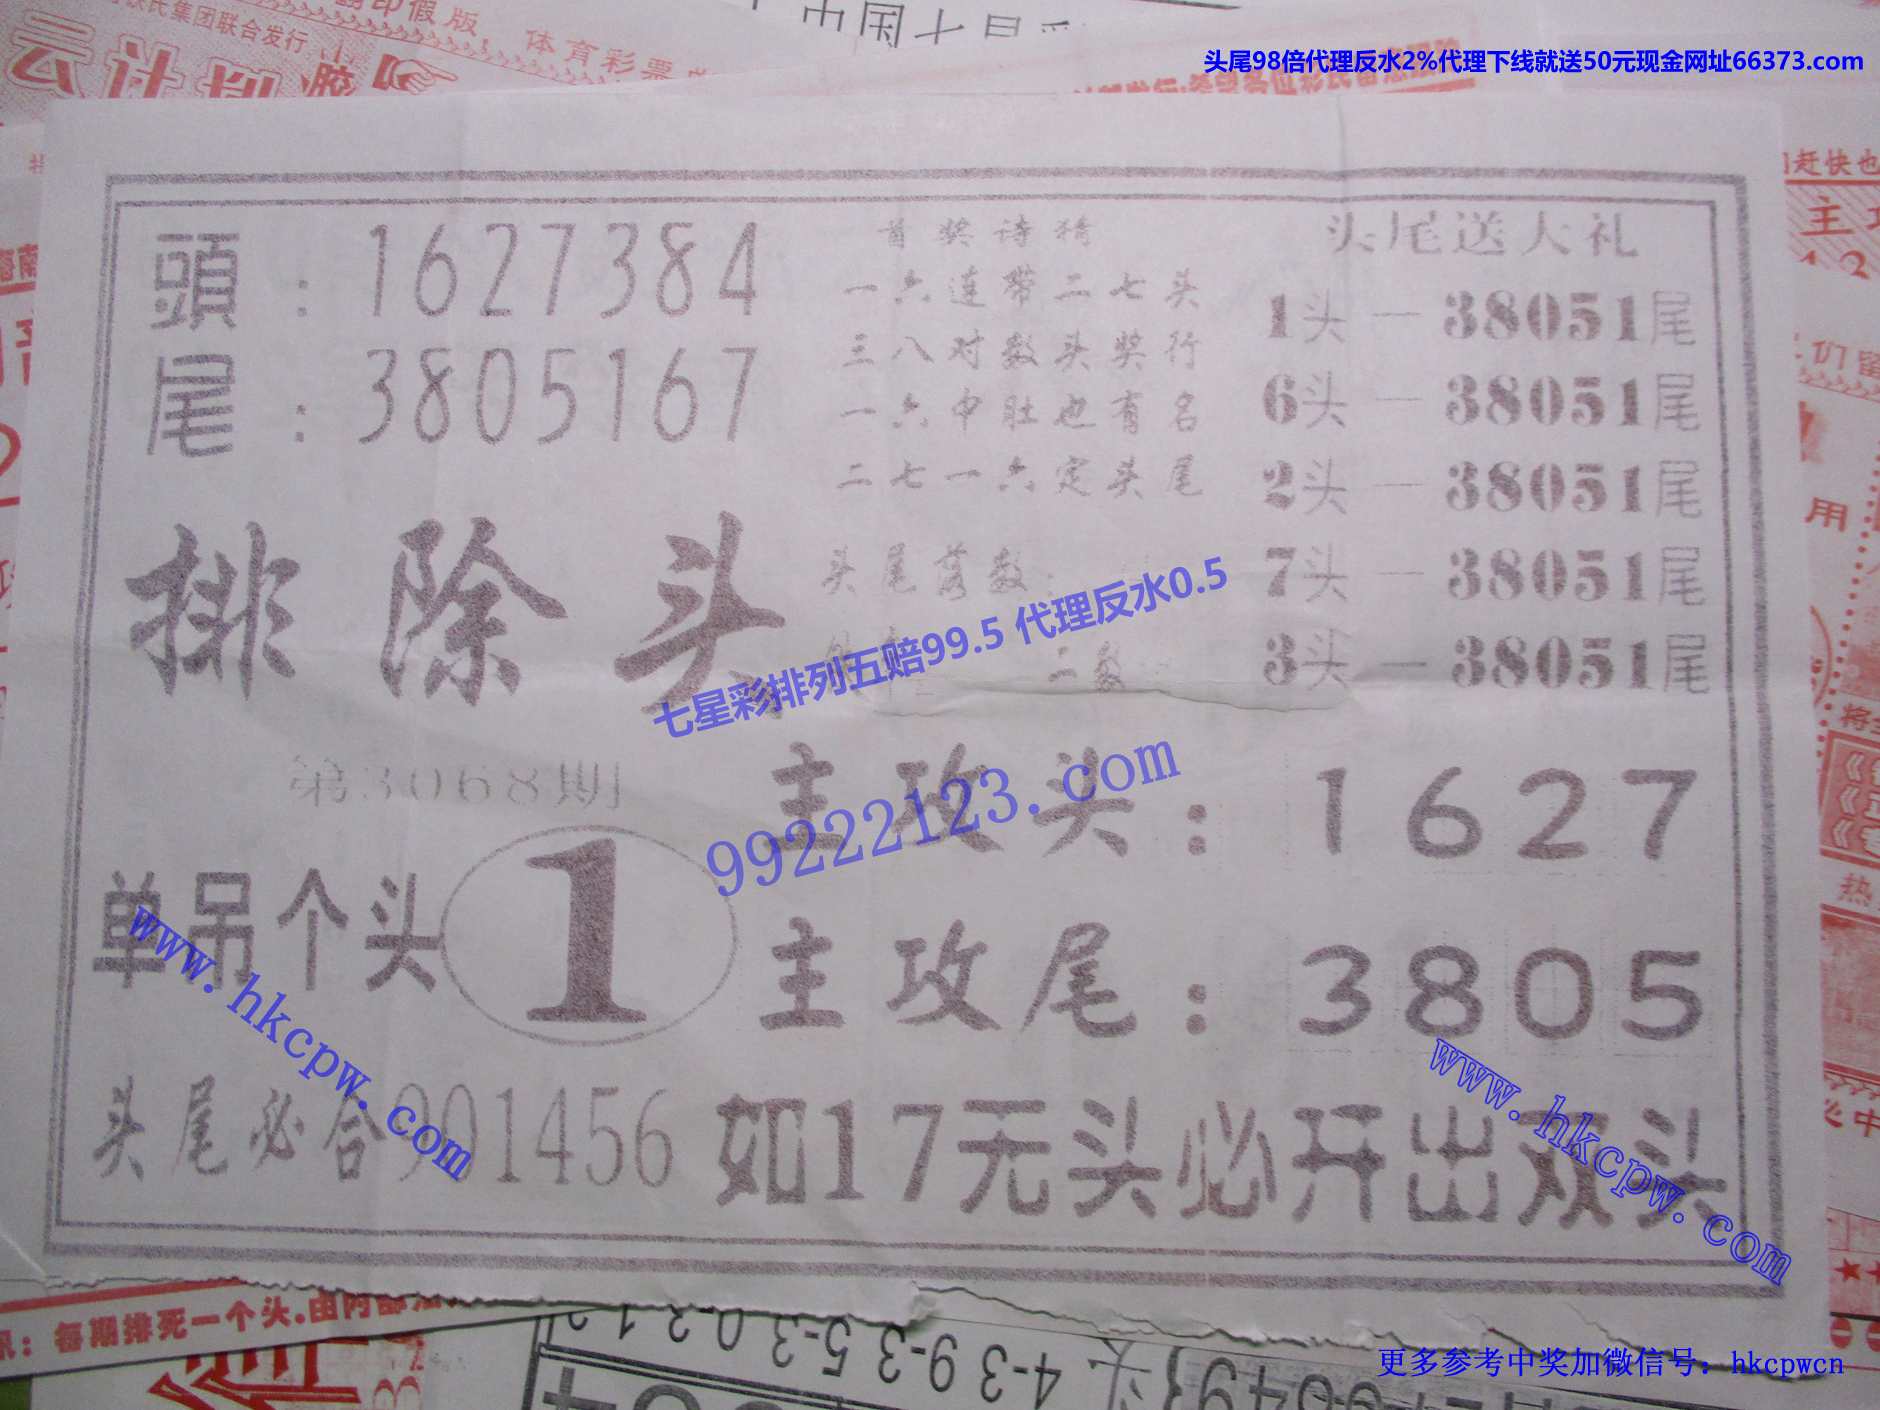 头尾98倍代理反水2%代理下线就送50元现金网址66373.com
頭：1627384
尾：3805167
首奖诗猜
一六连带二七头
三八对数头奖行
一六中肚也有名
二七一六定头尾
头尾送大礼
1头一38051尾
6头一38051尾
2头一38051尾
7头一38051尾
3头一38051尾
排除头
七星彩排列五赔99.5 代理反水0.5
99222123.com
第3068期
单吊个头 1
主攻头：1627
主攻尾：3805
头尾必合901456
如17无头必开出双头
www.hkcpw.com
www.hkcpw.com
更多参考中奖加微信号：hkcpwcn
集团联合发行
体育彩票
每期排死一个头.由内部